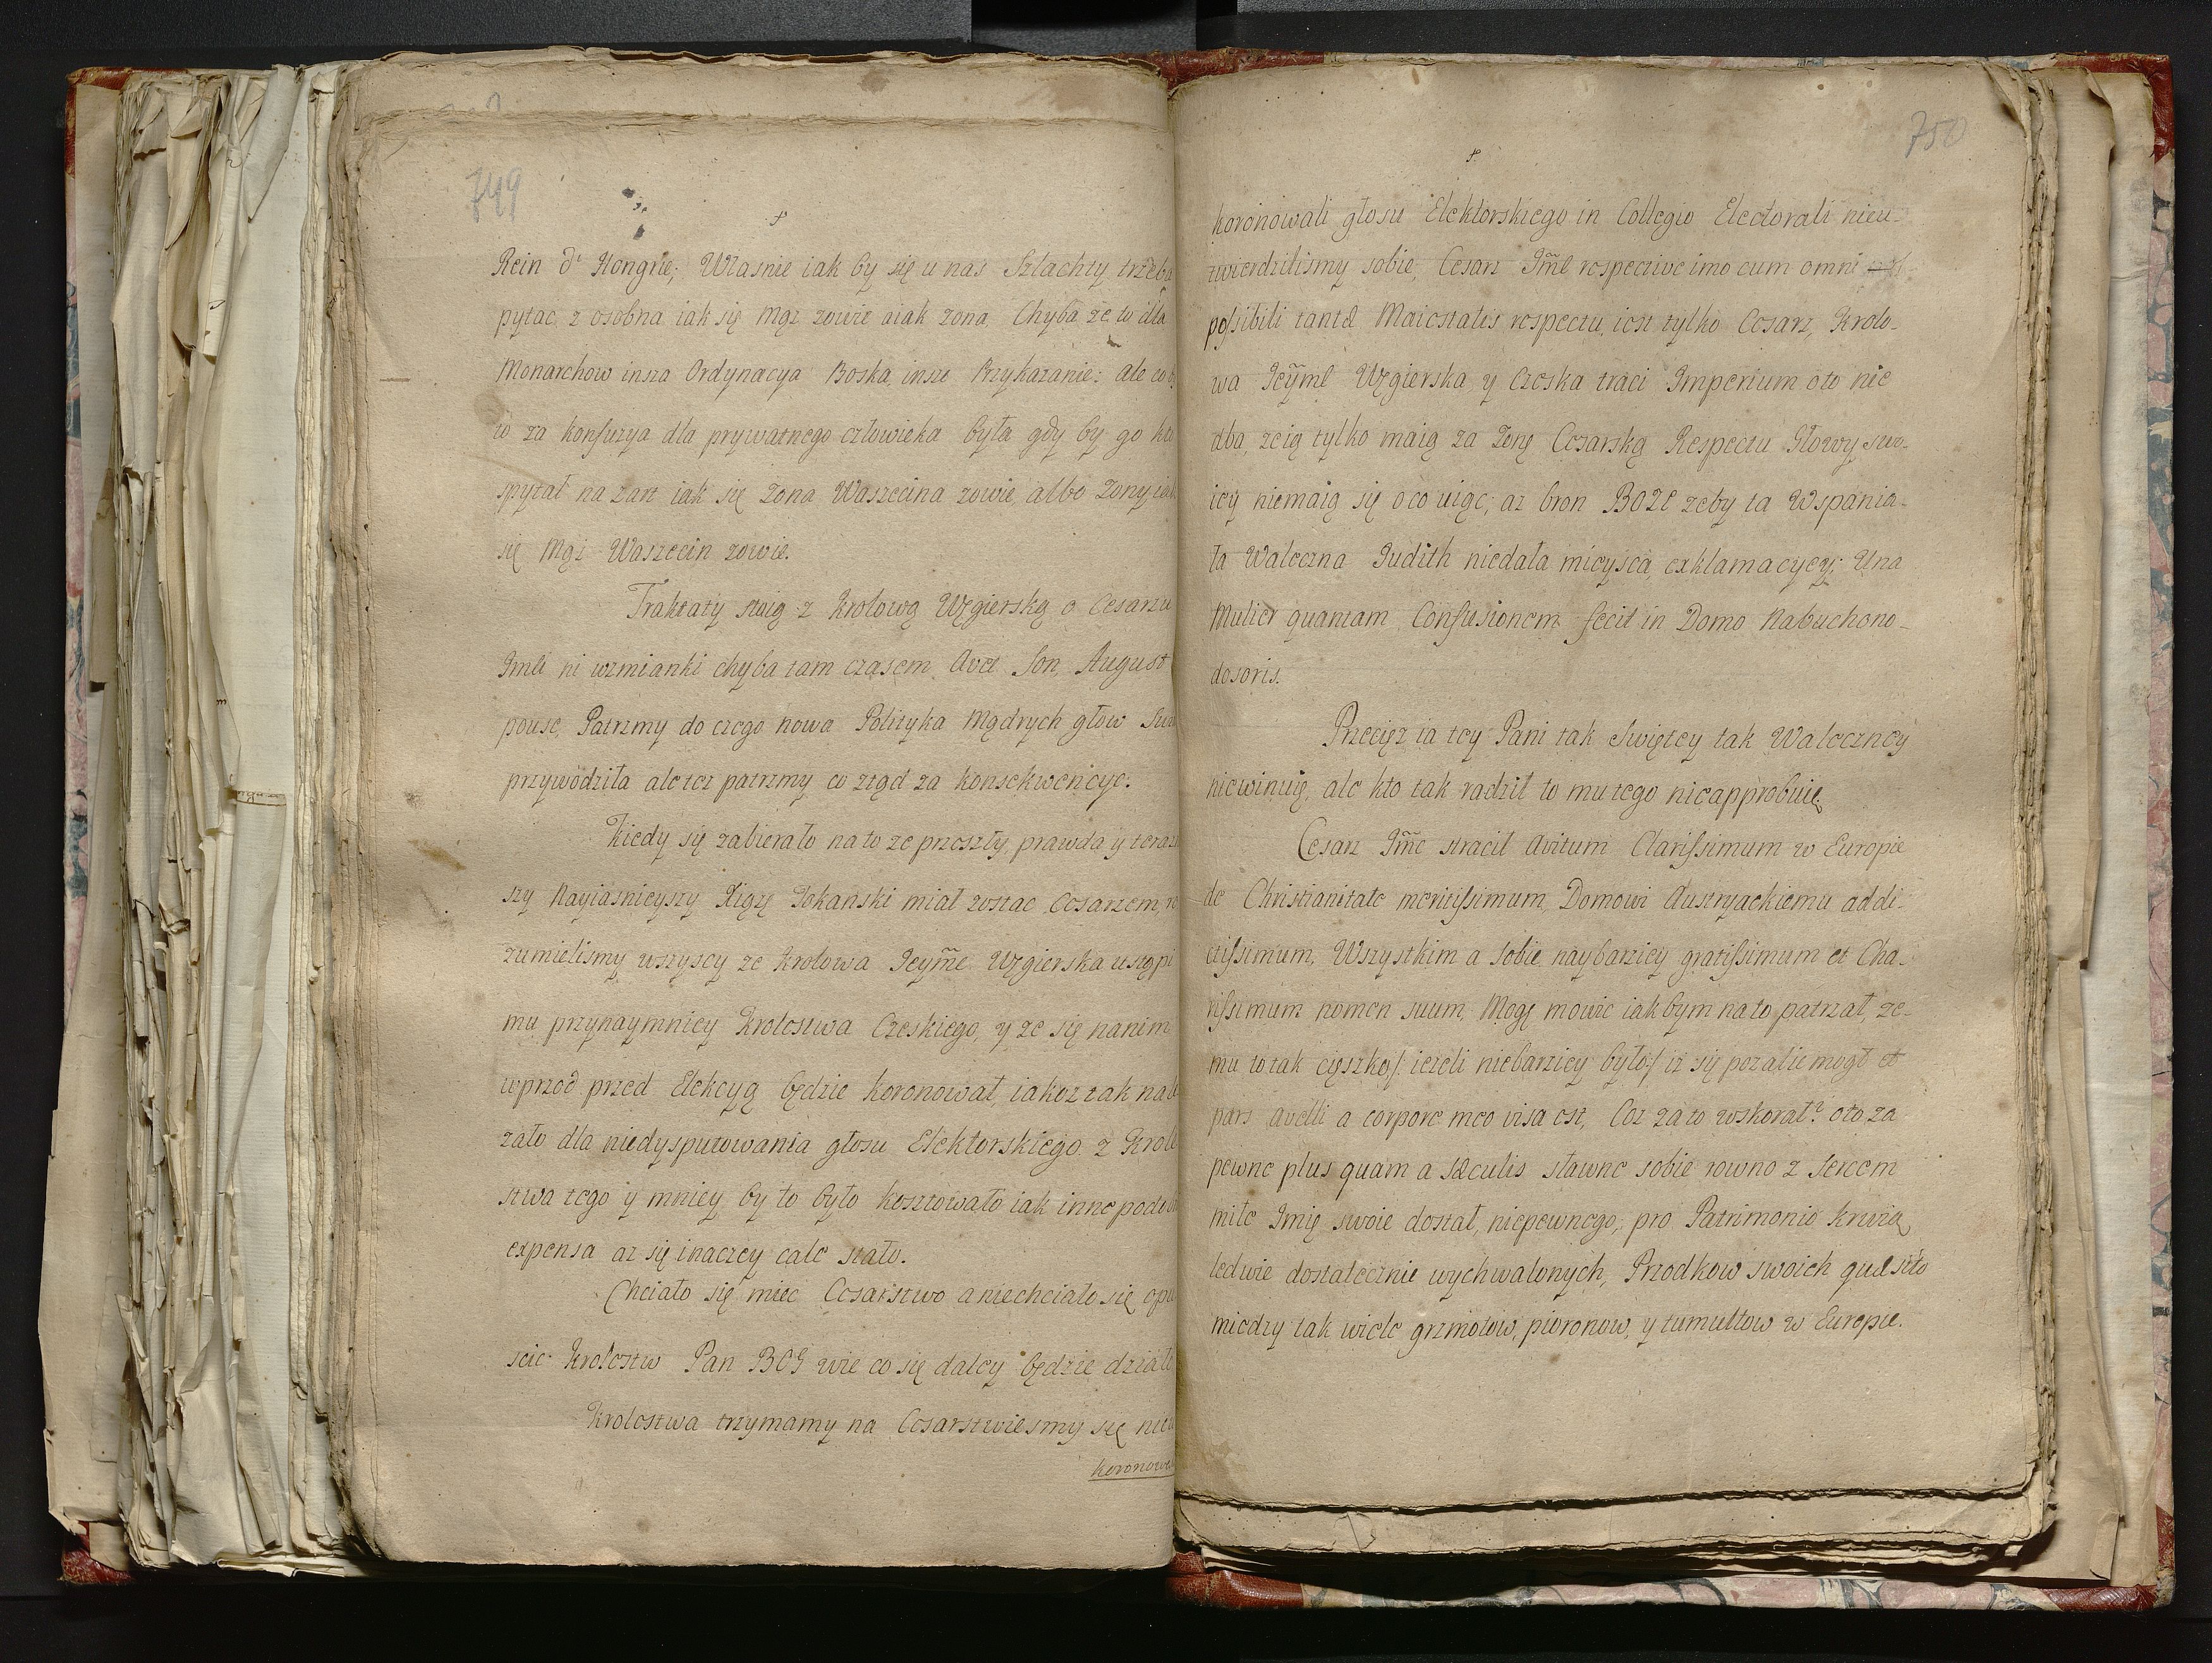 749
+
Rein d' Hongrie; Własnie iak by się u nas Szlachty trzeba
pytac z osobna iak się Mąz zowie aiak zona. Chyba ze to dla
Monarchow insza Ordynacya Boska, insze Przykazanie: ale co
to za konfuzya dla prywatnego człowieka była gdy by go kto
spytał na zart iak się zona Waszecina zowie, albo zony iak
się Mąz Waszecin zowie.
Traktaty staią z krolową Węgierską o Cesarzu
Jmci ni wzmianki chyba tam czasem Avec Son August
pouse, Patrzmy do czego nowa Polityka Mądrych głow
przywodziła alezcz patrzmy co ztąd za konsekwencye.
Kiedy się zabierało na to ze przeszły, prawda y teraz
szy Nayiasnieyszy Xiąze Tokanski miał zostac Cesarzem, ro
zumielismy wszyscy ze krolowa Jeym̃e Węgierska ustąpi
mu przynaymniey Krolestwa Czeskiego, y ze się nanim
wprzod przed Elekcyą będzie koronował, iakoz tak nale
zało dla niedysputowania głosu Elektorskiego z Krole
stwa tego y mniey by to było kosztowało iak inne
expensa az się inaczey cale stało.
Chciało się miec Cesarstwo a niechciało się opu
scic Krolestw Pan BOG wie co się daley będzie działo
Krolestwa trzymamy na Cesarstwiesmy się nie
koronowa
750
+
koronowali głosu Elektorskiego in Collegio Electorali nieu-
twierdzilismy sobie, Cesarz Jm̃c respective imo cum omni
possibili tantæ Maiestatis respectu, iest tylko Cesarz, Krolo-
wa Jeym̃c Węgierska y Czeska traci Imperium oto nie
dba, zeią tylko maią za Zonę Cesarską Respectu Głowy swo-
iey niemaią się oco uiąc; az bron BOZE zeby ta Wspania-
ła Waleczna Judith niedała mieysca exklamacyey; Una
Mulier quantam Confusionem fecit in Domo Nabuchono-
dosoris.
Przecięz ia tey Pani tak Swiętey tak Waleczney
niewinuię, ale kto tak radził to mu tego nieapprobuię
Cesarz Jm̃c stracił Avitum Clarissimum w Europie
de Christianitate meritissimum, Domowi Austryackiemu addi-
ctissimum, Wszystkim a sobie naybarziey gratissimum et Cha-
rissimum nomen suum, Mogę mowic iak bym na to patrzał, ze-
mu to tak cięszko /: iezeli niebarziey było :/ iz się pozalic mogł et
pars avelli a corpore meo visa est, Coz za to wskorał? oto za
pewne plus quam a sæculis sławne sobie rowno z sercem
miłe Imię swoie dostał, niepewnego, pro Patrimonio krwią
ledwie dostatecznie wychwalonych, Przodkow swoich quæsito
miedzy tak wiele grzmotow, pioronow, y tumultow w Europie.